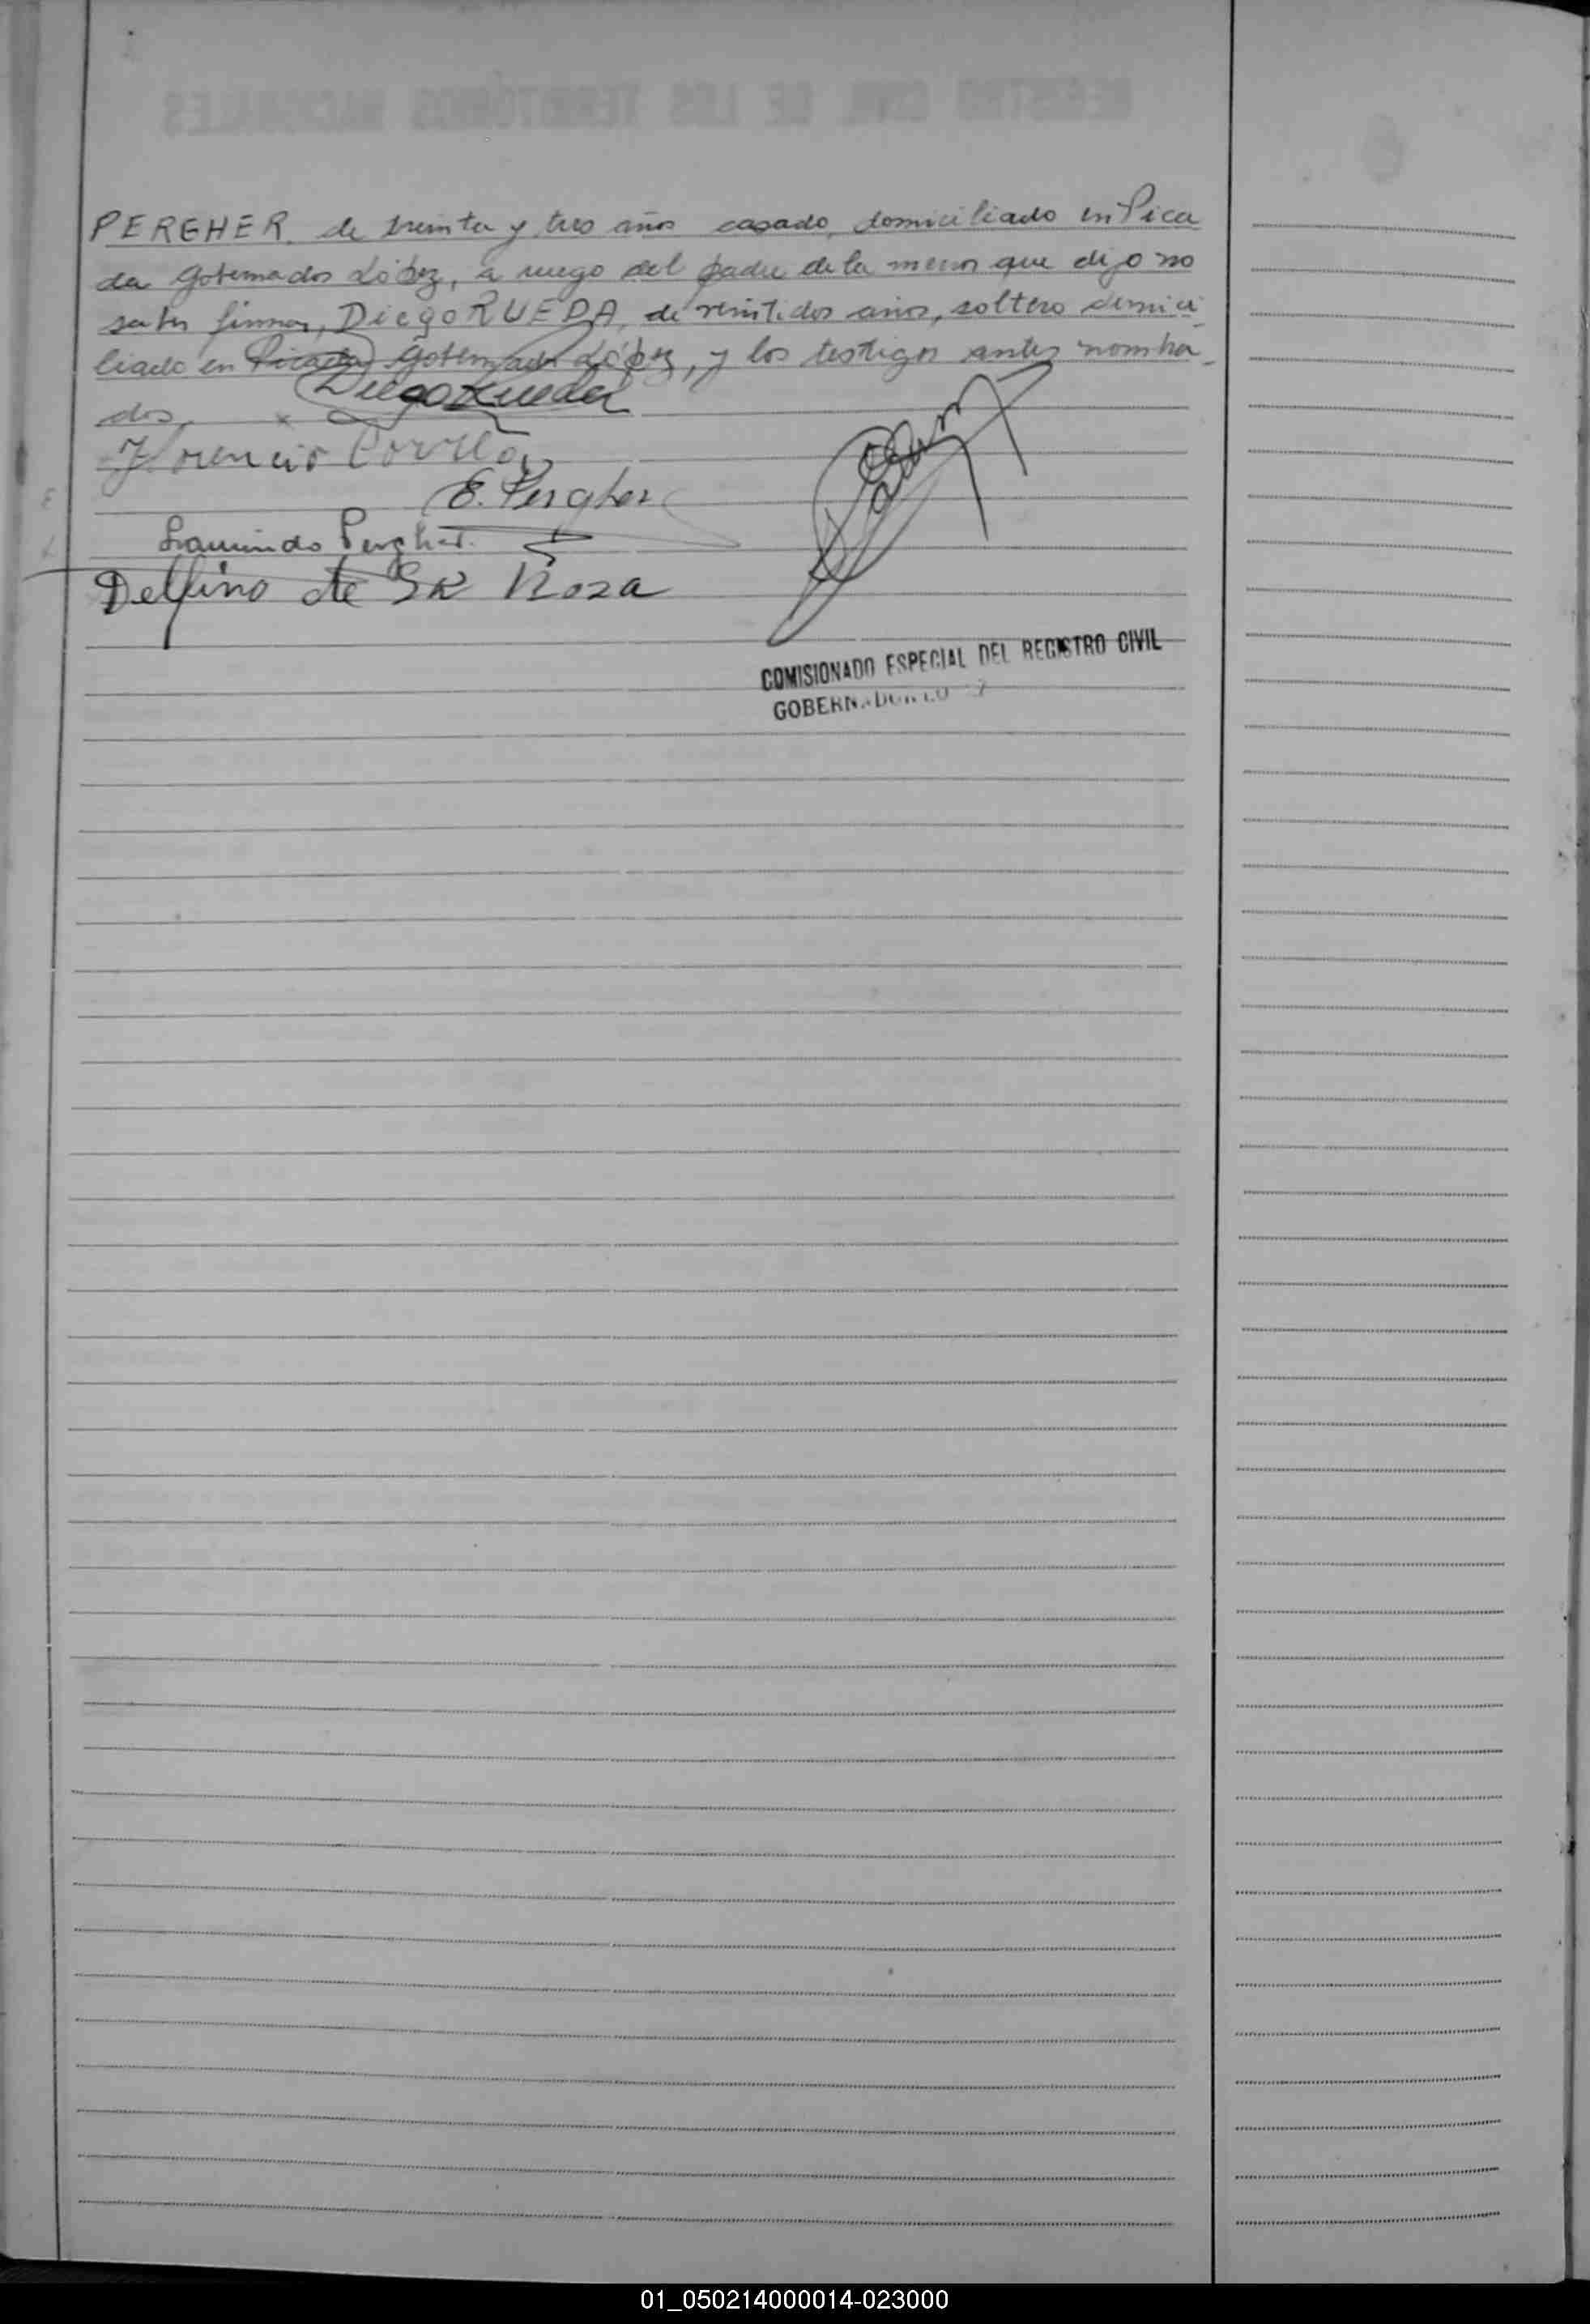 PERGHER, de treinta y tres años casado, domiciliado en Pica
da Gobernador López, a ruego del padre de la menor que dijo no
saber firmar, Diego RUEDA, de veintidos años, soltero domici
liado en Picada Gobernador López, y los testigos antes nombra
dos.
Diego Rueda
Florencio
E. Pergher
Laurindo Pergher.
Delfino de SR Roza
COMISIONADO ESPECIAL DEL REGISTRO CIVIL
01_050214000014-023000